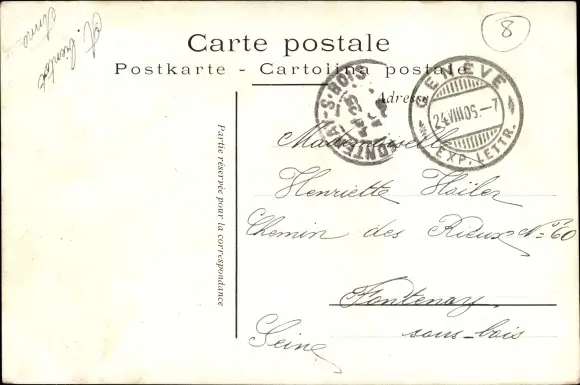 8
Carte postale
Postkarte - Cartolina postale
Adresse
GENÈVE
24.VIII.06.-7
EXP. LETTR.
FONTENAY-S-BOIS
Partie réservée pour la correspondance
Mademoiselle
Henriette Hoïler
Chemin des Rieux N° 60
Fontenay
sous-bois
Seine